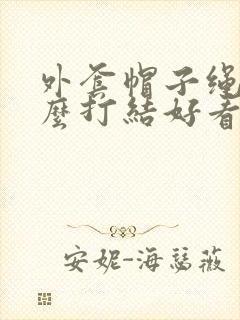 外套帽子绳
麽打結好看
安妮-海瑟薇